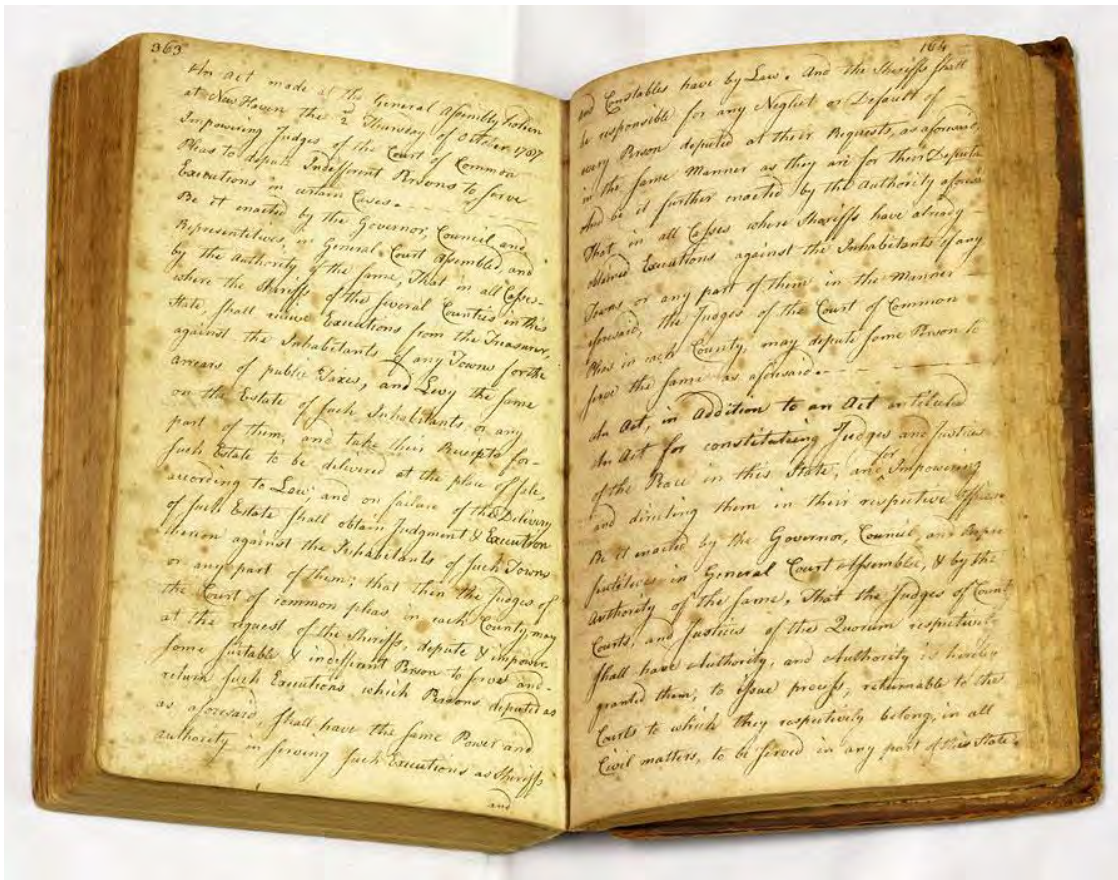 363
An Act made at the General Assembly holden
at New Haven the 2d Thursday of October 1787
Impowering Judges of the Court of Common
Pleas to depute Indifferent Persons to serve
Executions in certain Cases.
Be it enacted by the Governor, Council, and
Representitives, in General Court Assembled, and
by the Authority of the same, That in all Cases
where the Sheriffs of the several Counties in this
State, shall receive Executions from the Treasurer,
against the Inhabitants of any Towns for the
arrears of public Taxes, and Levy the same
on the Estate of such Inhabitants or any
part of them, and take their Receipts for
such Estate to be delivered at the place of sale,
according to Law; and on failure of the Delivery
of such Estate shall obtain Judgment & Execution
thereon against the Inhabitants of such Towns
or any part of them; that then the Judges of
the Court of common pleas in each County may
at the request of the Sheriffs, depute & impower
some suitable & indifferent Person to serve and
return such Executions, which Persons deputed as
as aforesaid, shall have the same Power and
authority in serving such Executions as Sheriffs
and
164
and Constables have by Law. And the Sheriffs shall
be responsible for any Neglect or Default of
every Person deputed at their Requests, as aforesaid,
in the same Manner as they are for their Deputs
And be it further enacted by the Authority aforesaid
That in all Cases where Sheriffs have already
obtained Executions against the Inhabitants of any
Towns or any part of them in the Manner
aforesaid, the Judges of the Court of Common
Pleas in each County, may depute some Person to
serve the same as aforesaid.
An Act, in Addition to an Act intitled
An Act for constituting Judges and Justices
of the Peace in this State, and for Impowering
and directing them in their respective Offices
Be it enacted by the Governor, Council, and Repre
sentitives in General Court Assembled, & by the
Authority of the same, That the Judges of County
Courts, and Justices of the Quorum respectively
shall have Authority, and Authority is hereby
granted them, to issue process, returnable to the
Courts to which they respectively belong, in all
Civil matters, to be served in any part of this State.